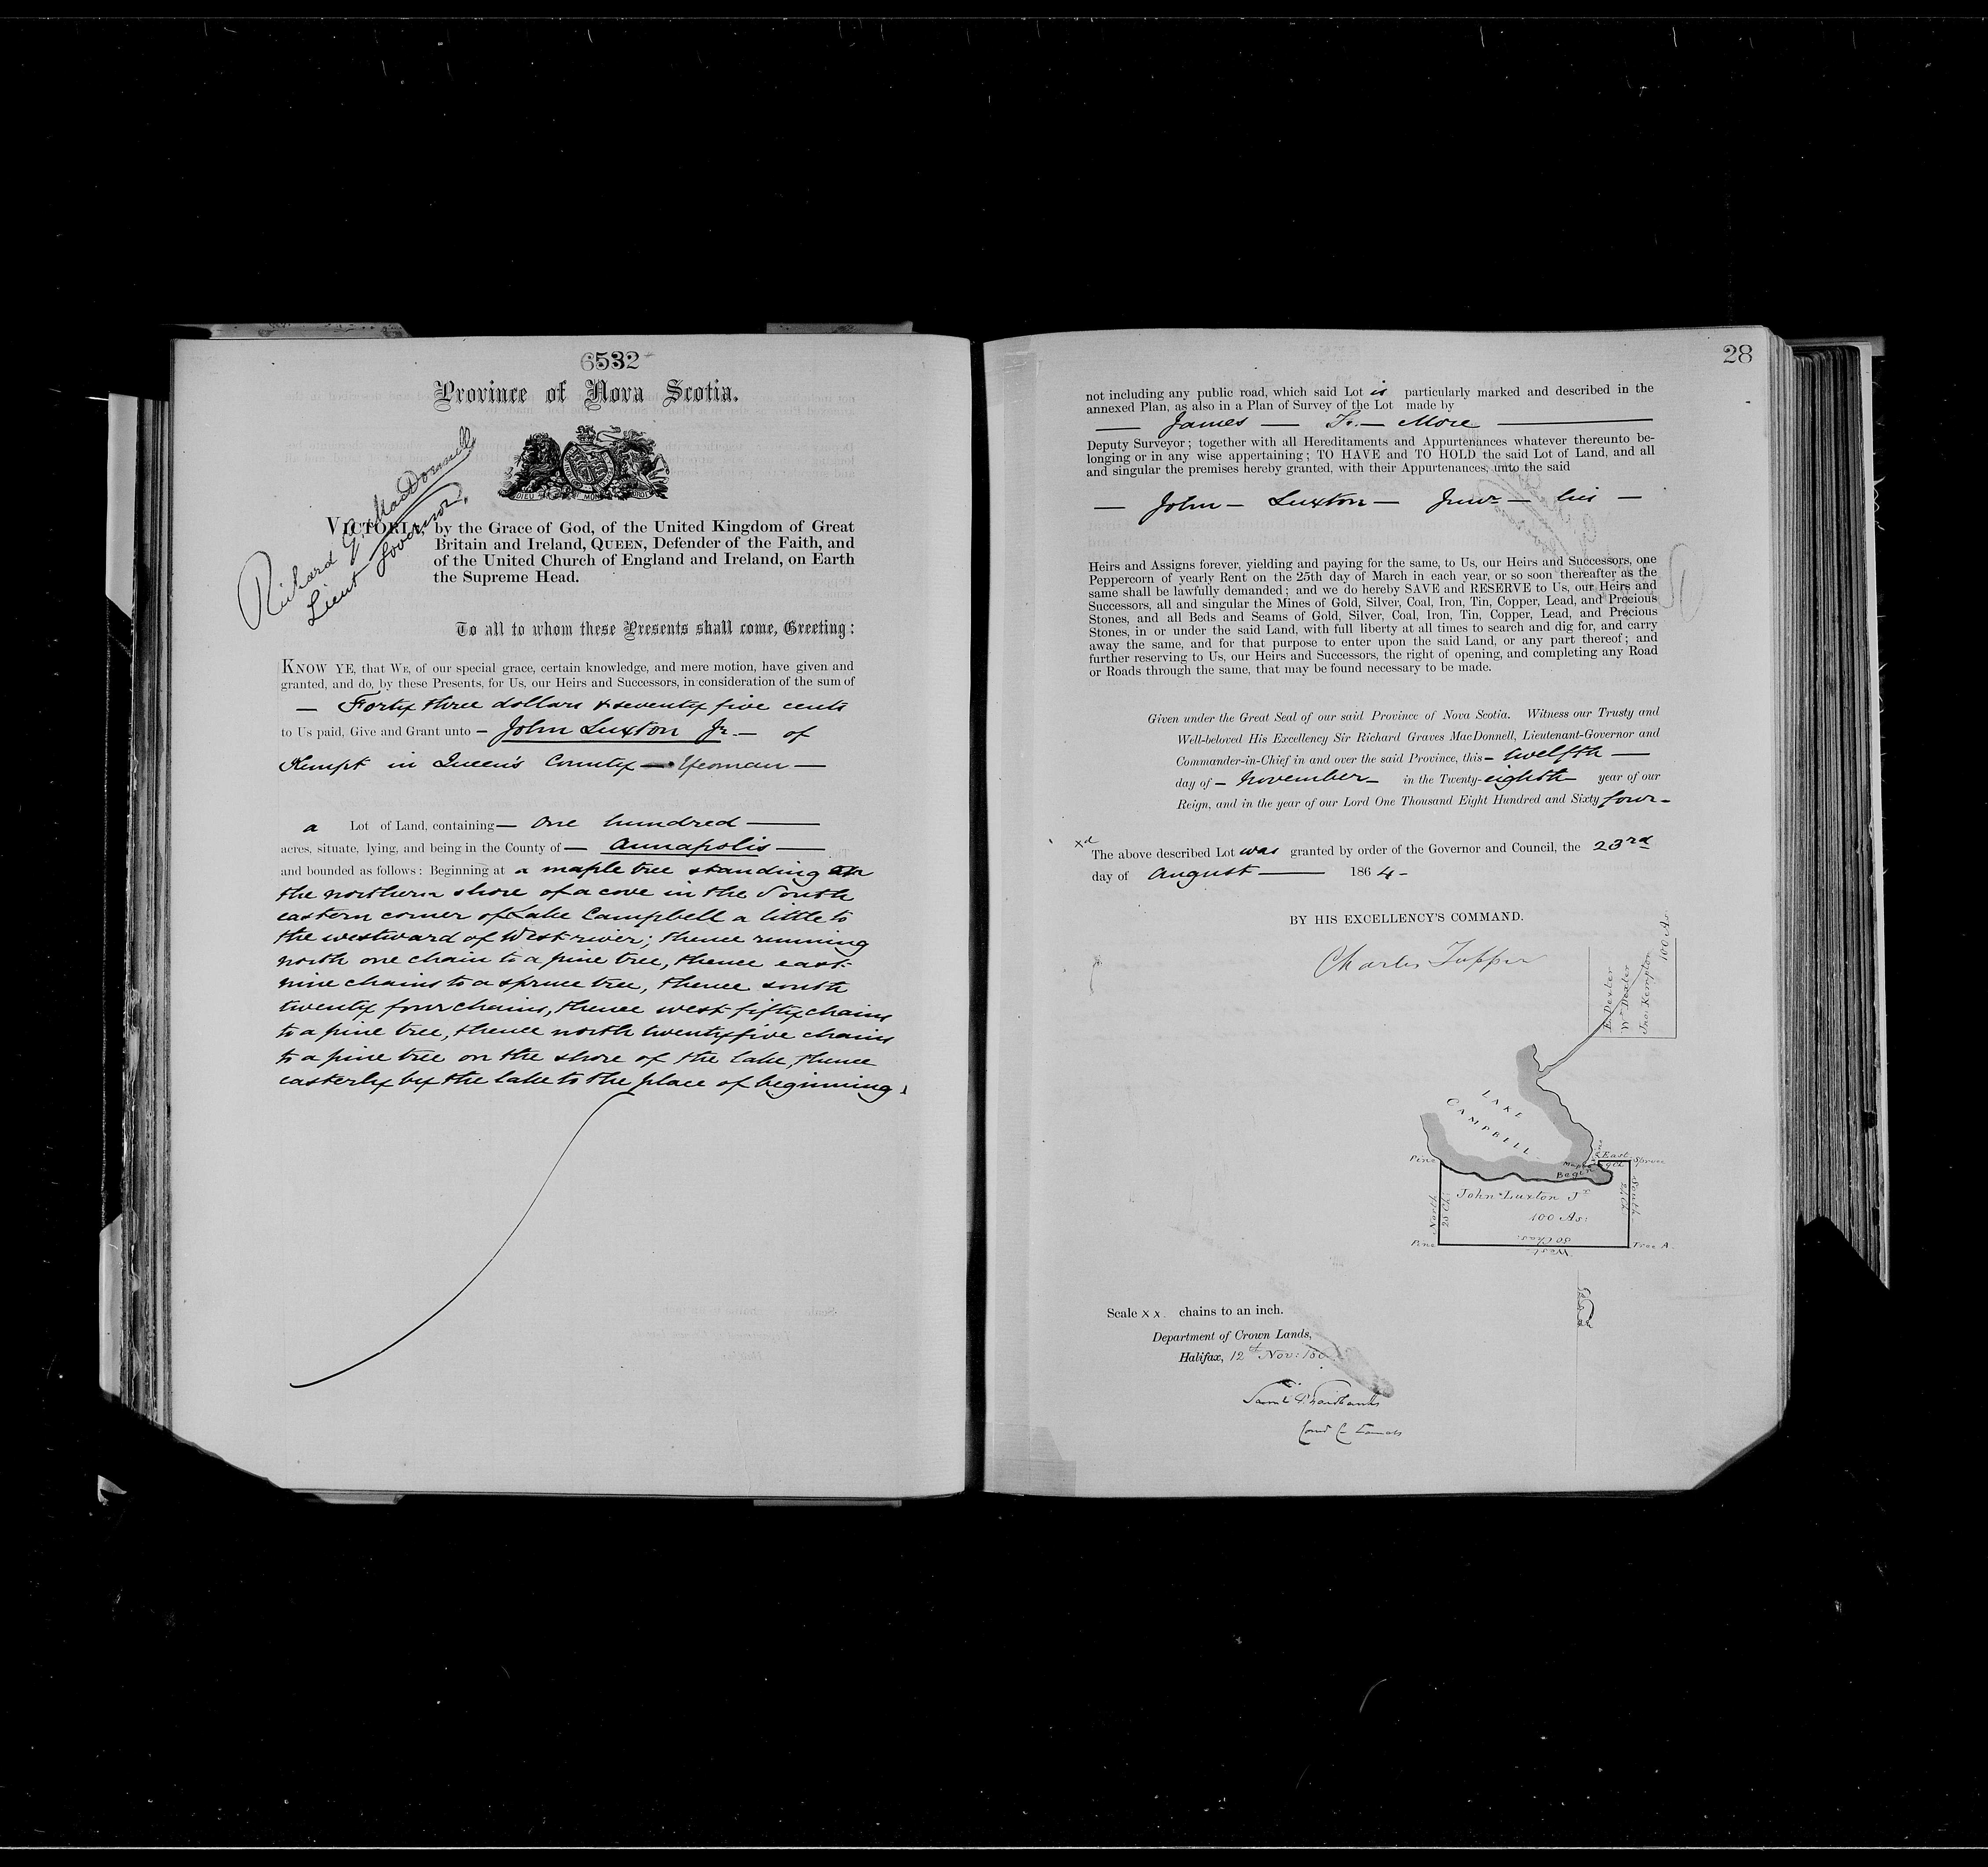 6532
Province of Nova Scotia.
DIEU ET MON DROIT
Richard G. MacDonnell
Lieut Governor.
VICTORIA, by the Grace of God, of the United Kingdom of Great
Britain and Ireland, QUEEN, Defender of the Faith, and
of the United Church of England and Ireland, on Earth
the Supreme Head.
To all to whom these Presents shall come, Greeting:
KNOW YE, that WE, of our special grace, certain knowledge, and mere motion, have given and
granted, and do, by these Presents, for Us, our Heirs and Successors, in consideration of the sum of
— Forty three dollars & seventy five cents
to Us paid, Give and Grant unto — John Luxton Jr. — of
Kempt in Queen's County — Yeoman —
a Lot of Land, containing — One hundred —
acres, situate, lying, and being in the County of — Annapolis —
and bounded as follows: Beginning at a maple tree standing on
the northern shore of a cove in the South
eastern corner of Lake Campbell a little to
the westward of West river; thence running
north one chain to a pine tree, thence east
nine chains to a spruce tree, thence south
twenty four chains, thence west fifty chains
to a pine tree, thence north twenty five chains
to a pine tree on the shore of the lake, thence
easterly by the lake to the place of beginning.
28
not including any public road, which said Lot is particularly marked and described in the
annexed Plan, as also in a Plan of Survey of the Lot made by
— James — — More —
Deputy Surveyor; together with all Hereditaments and Appurtenances whatever thereunto be-
longing or in any wise appertaining; TO HAVE and TO HOLD the said Lot of Land, and all
and singular the premises hereby granted, with their Appurtenances, unto the said
— John — Luxton — Junr — his —
Heirs and Assigns forever, yielding and paying for the same, to Us, our Heirs and Successors, one
Peppercorn of yearly Rent on the 25th day of March in each year, or so soon thereafter as the
same shall be lawfully demanded; and we do hereby SAVE and RESERVE to Us, our Heirs and
Successors, all and singular the Mines of Gold, Silver, Coal, Iron, Tin, Copper, Lead, and Precious
Stones, and all Beds and Seams of Gold, Silver, Coal, Iron, Tin, Copper, Lead, and Precious
Stones, in or under the said Land, with full liberty at all times to search and dig for, and carry
away the same, and for that purpose to enter upon the said Land, or any part thereof; and
further reserving to Us, our Heirs and Successors, the right of opening, and completing any Road
or Roads through the same, that may be found necessary to be made.
Given under the Great Seal of our said Province of Nova Scotia. Witness our Trusty and
Well-beloved His Excellency Sir Richard Graves MacDonnell, Lieutenant-Governor and
Commander-in-Chief in and over the said Province, this — twelfth —
day of — November — in the Twenty-eighth year of our
Reign, and in the year of our Lord One Thousand Eight Hundred and Sixty four —
xd
The above described Lot was granted by order of the Governor and Council, the 23rd
day of August — 1864 —
BY HIS EXCELLENCY'S COMMAND.
Charles Tupper
E. Dexter
Wm Dexter
Jno: Kempton
100 As.
LAKE
CAMPBELL
Pine
Maple
Begin
East
9 Ch
Spruce
John Luxton Jr
100 As:
North
25 Ch:
South
24 Ch
50 Chas:
West
Pine
Tree A.
Scale x x chains to an inch.
Department of Crown Lands,
Halifax, 12th Nov: